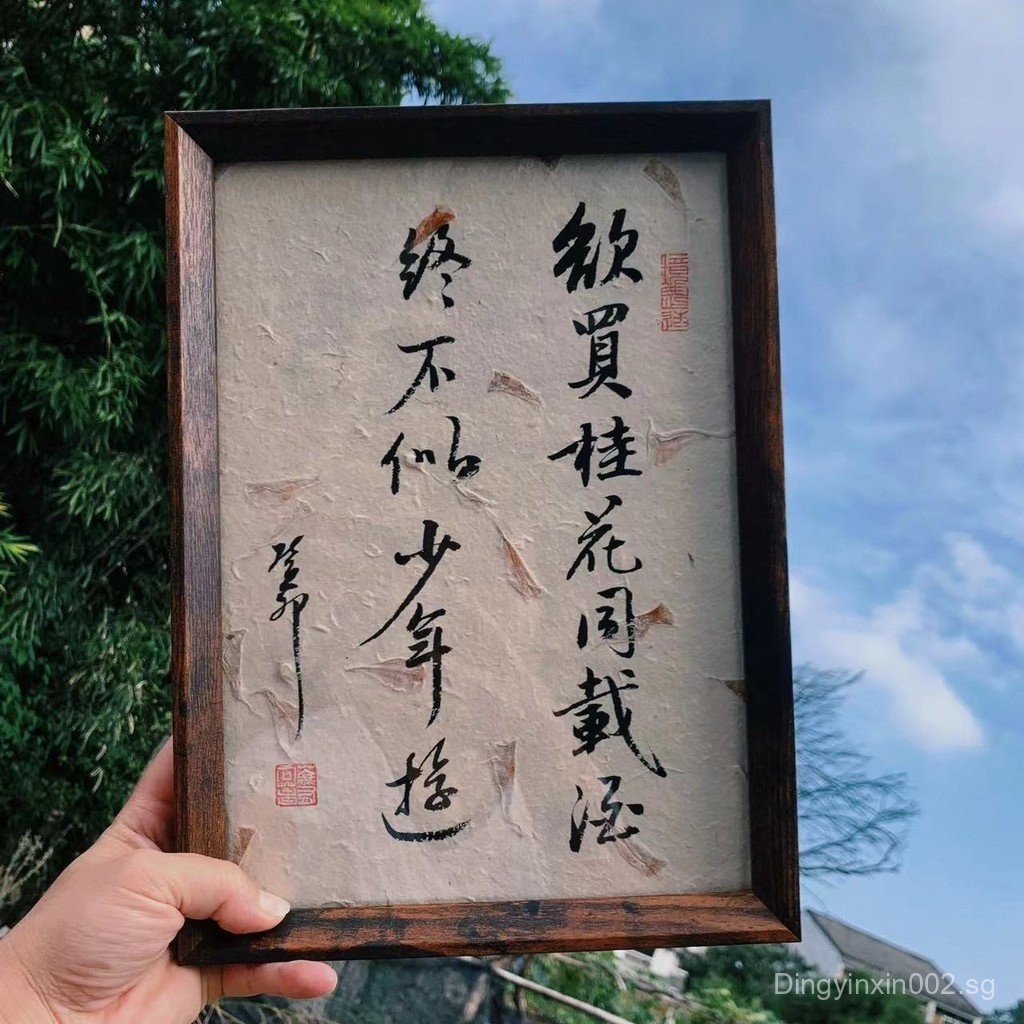 欲買桂花同載酒
終不似少年遊
癸卯
Dingyinxin002.sg